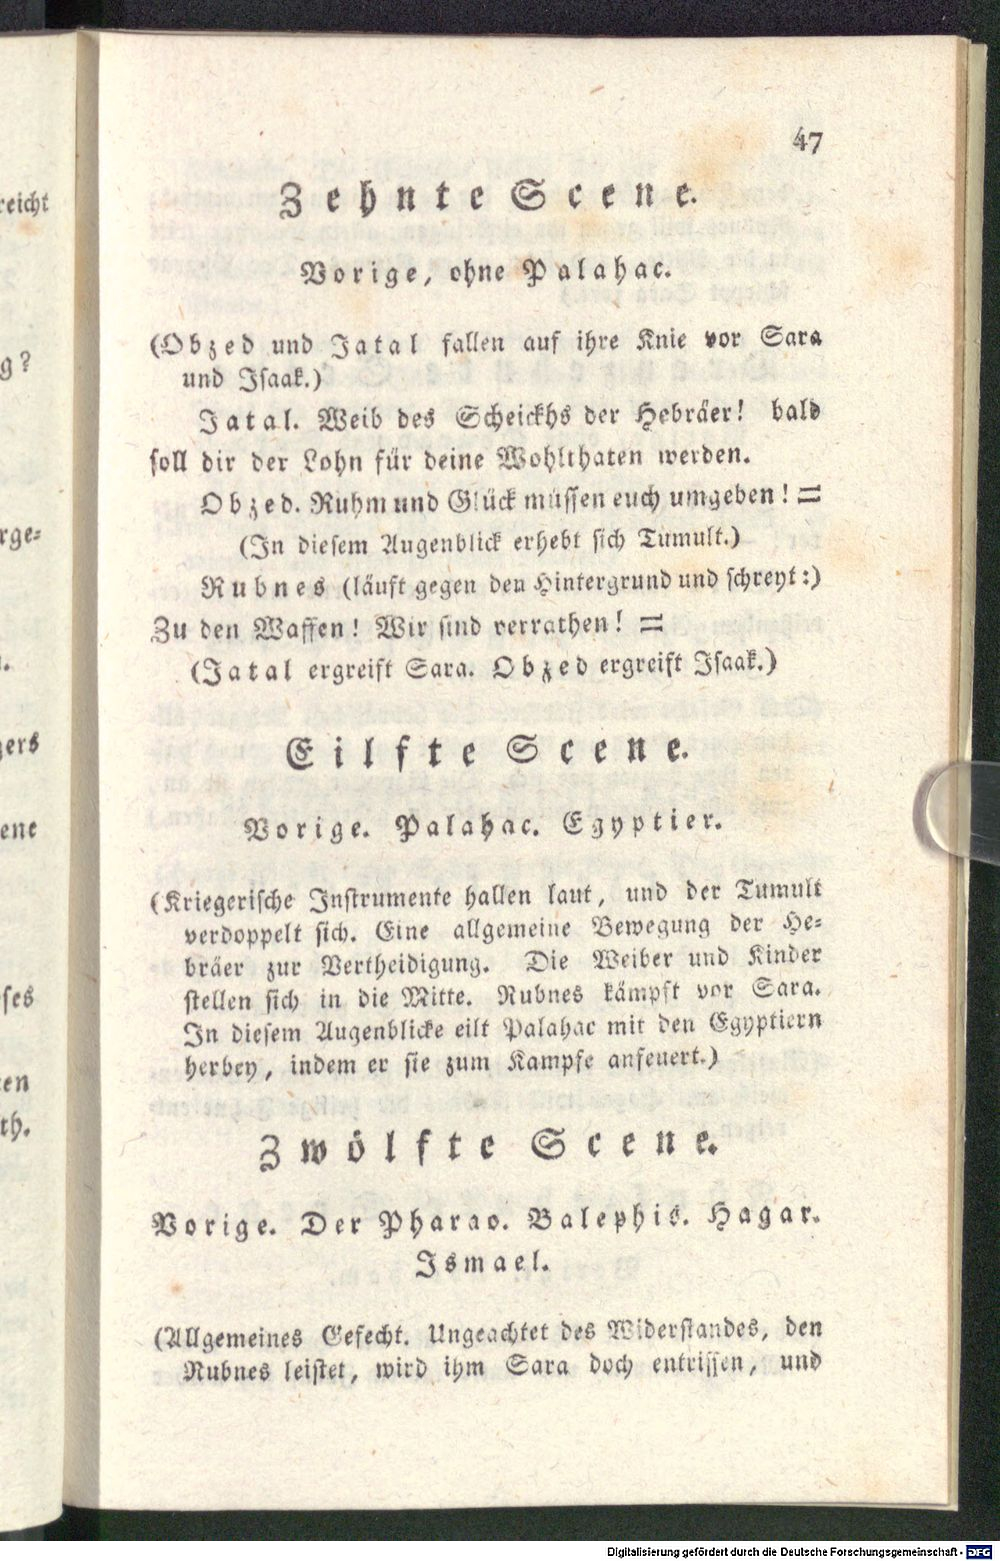 reicht
g?
rge-
gers
ene
ses
en
th.
47
Zehnte Scene.
Vorige, ohne Palahac.
(Obzed und Jatal fallen auf ihre Knie vor Sara
und Isaak.)
Jatal. Weib des Scheickhs der Hebräer! bald
soll dir der Lohn für deine Wohlthaten werden.
Obzed. Ruhm und Glück müssen euch umgeben! =
(In diesem Augenblick erhebt sich Tumult.)
Rubnes (läuft gegen den Hintergrund und schreyt:)
Zu den Waffen! Wir sind verrathen! =
(Jatal ergreift Sara. Obzed ergreift Isaak.)
Eilfte Scene.
Vorige. Palahac. Egyptier.
(Kriegerische Instrumente hallen laut, und der Tumult
verdoppelt sich. Eine allgemeine Bewegung der He-
bräer zur Vertheidigung. Die Weiber und Kinder
stellen sich in die Mitte. Rubnes kämpft vor Sara.
In diesem Augenblicke eilt Palahac mit den Egyptiern
herbey, indem er sie zum Kampfe anfeuert.)
Zwölfte Scene.
Vorige. Der Pharao. Balephis. Hagar.
Ismael.
(Allgemeines Gefecht. Ungeachtet des Widerstandes, den
Rubnes leistet, wird ihm Sara doch entrissen, und
Digitalisierung gefördert durch die Deutsche Forschungsgemeinschaft - DFG